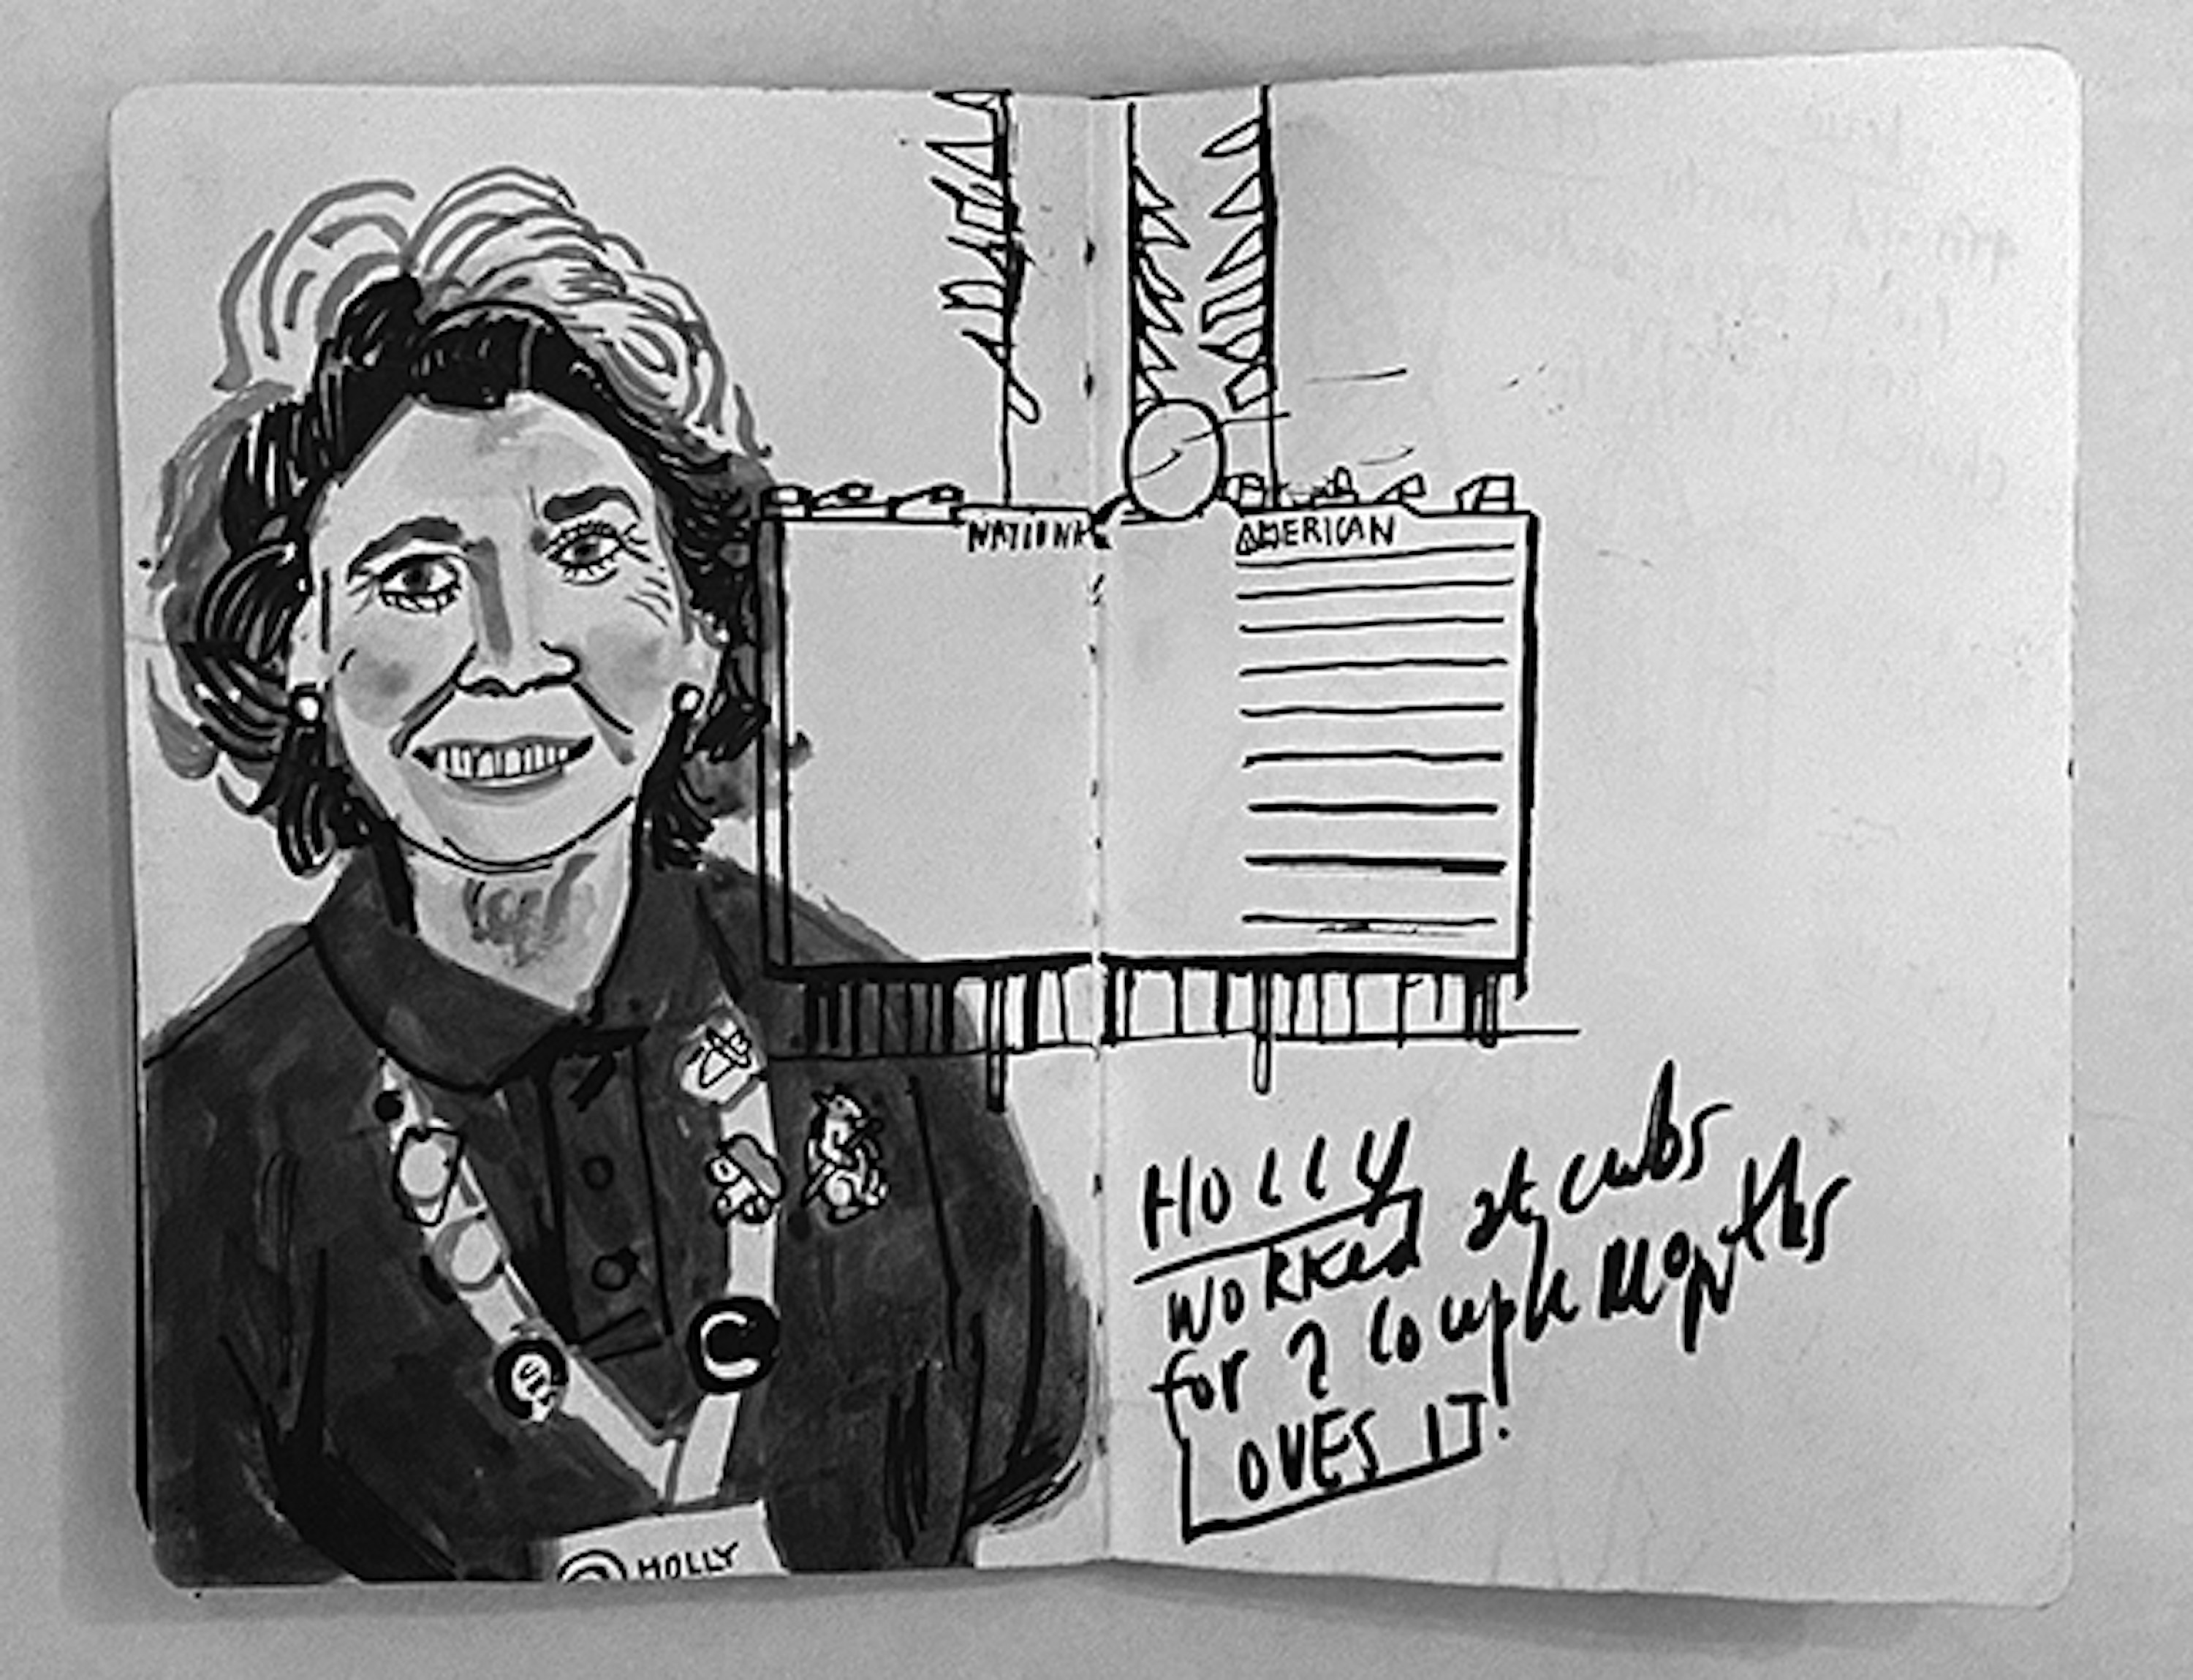 NATIONA AMERICAN
HOLLY
WORKED at cubs
for a couple MONths
LOVES IT!
C
HOLLY